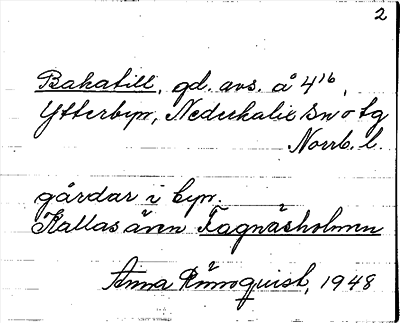 2
Bakatill, gd. avs. å 4¹⁶,
Ytterbyn, Nederkalix sn o tg
Norrb. l.
gårdar i byn.
Kallas även Fagnäsholmen
Anna Rönnquist, 1948